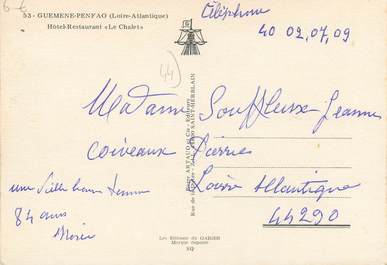 6 €
53 - GUEMENE-PENFAO (Loire-Atlantique)
Hôtel-Restaurant «Le Chalet»
téléphone
40 02,07,09
44
Madame Souffleux Jeanne
coiveaux Pierric
Loire Atlantique
44290
une vieille bonne femme
84 ans
Merci
ARTAUD et Cie - Editeurs
SAINT-HERBLAIN
Les Editions du GABIER
Marque déposée